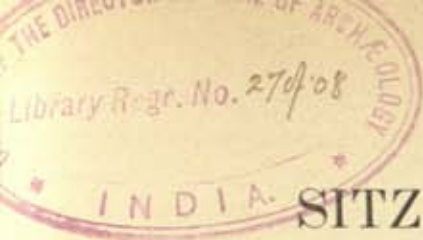 THE DIRECTOR OF ARCHÆOLOGY
Library Regr. No. 27 of 08
INDIA.
SITZ